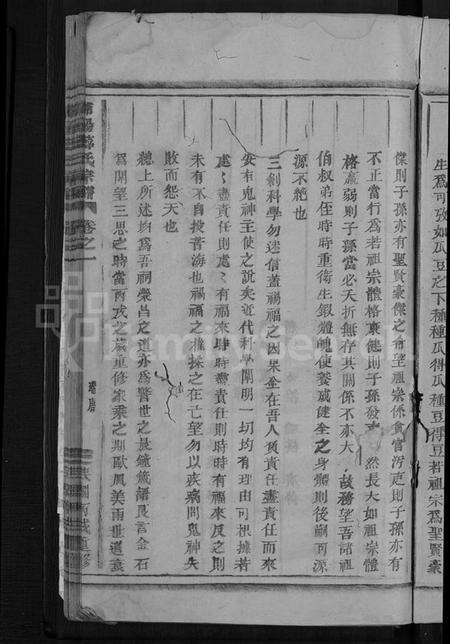 生爲可致如瓜豆之下種種瓜得瓜種豆得豆若祖宗爲聖賢豪
傑則子孫亦有聖賢豪傑之希望祖宗係貪官污吏則子孫亦有
不正當行爲若祖宗體格衰健則子孫發 然長大如祖宗體
格羸弱則子孫當必夭折無存其關係不亦大 故務望吾諸祖
伯叔弟侄時時重衛生鍛體魄使養成健全之身體則後嗣可源
源不絶也
三剏科學勿迷信蓋禍福之因果全在吾人負責任盡責任而來
安有鬼神主使之說矣近代科學開明一切均有理由可根據若
處處盡責任則處處有福來時時盡責任則時時有福來反之則
未有不自投苦海也禍福之推操之在己望勿以疾病問鬼神失
敗而怨天也
總上所述均爲吾祠榮昌之道亦爲警世之晨鐘箴諸良言金石
爲開望三思之時當丙戌之歲重修家乘之期歐風美雨世道衰
陽 氏宗譜 卷之一
民國丙戌重修